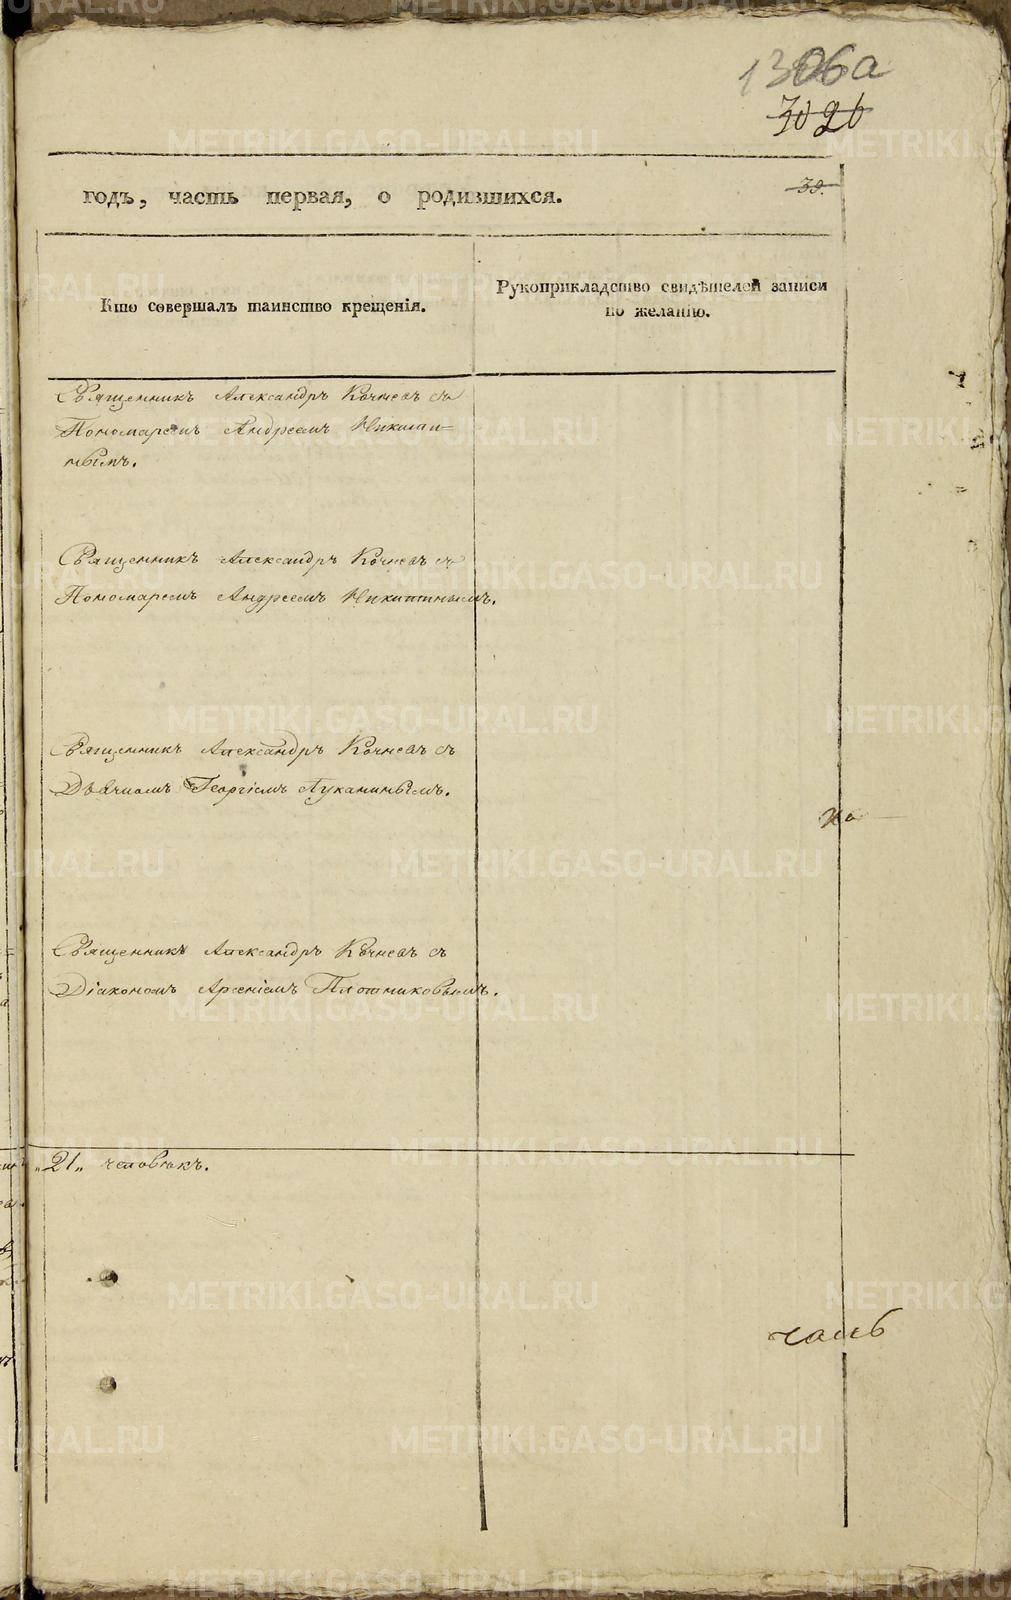 1306а
годъ, часть первая, о родившихся.
39.
Кто совершалъ таинство крещенія.
Рукоприкладство свидѣтелей записи
по желанію.
Священникъ Александръ Кочневъ съ
Пономаремъ Андреемъ Никити-
нымъ.
Священникъ Александръ Кочневъ съ
Пономаремъ Андреемъ Никитинымъ.
Священникъ Александръ Кочневъ съ
Дьячкомъ Георгіемъ Луканинымъ.
на
Священникъ Александръ Кочневъ съ
Діакономъ Арсеніемъ Плотниковымъ.
„21„ человѣкъ.
часть
METRIKI.GASO-URAL.RU